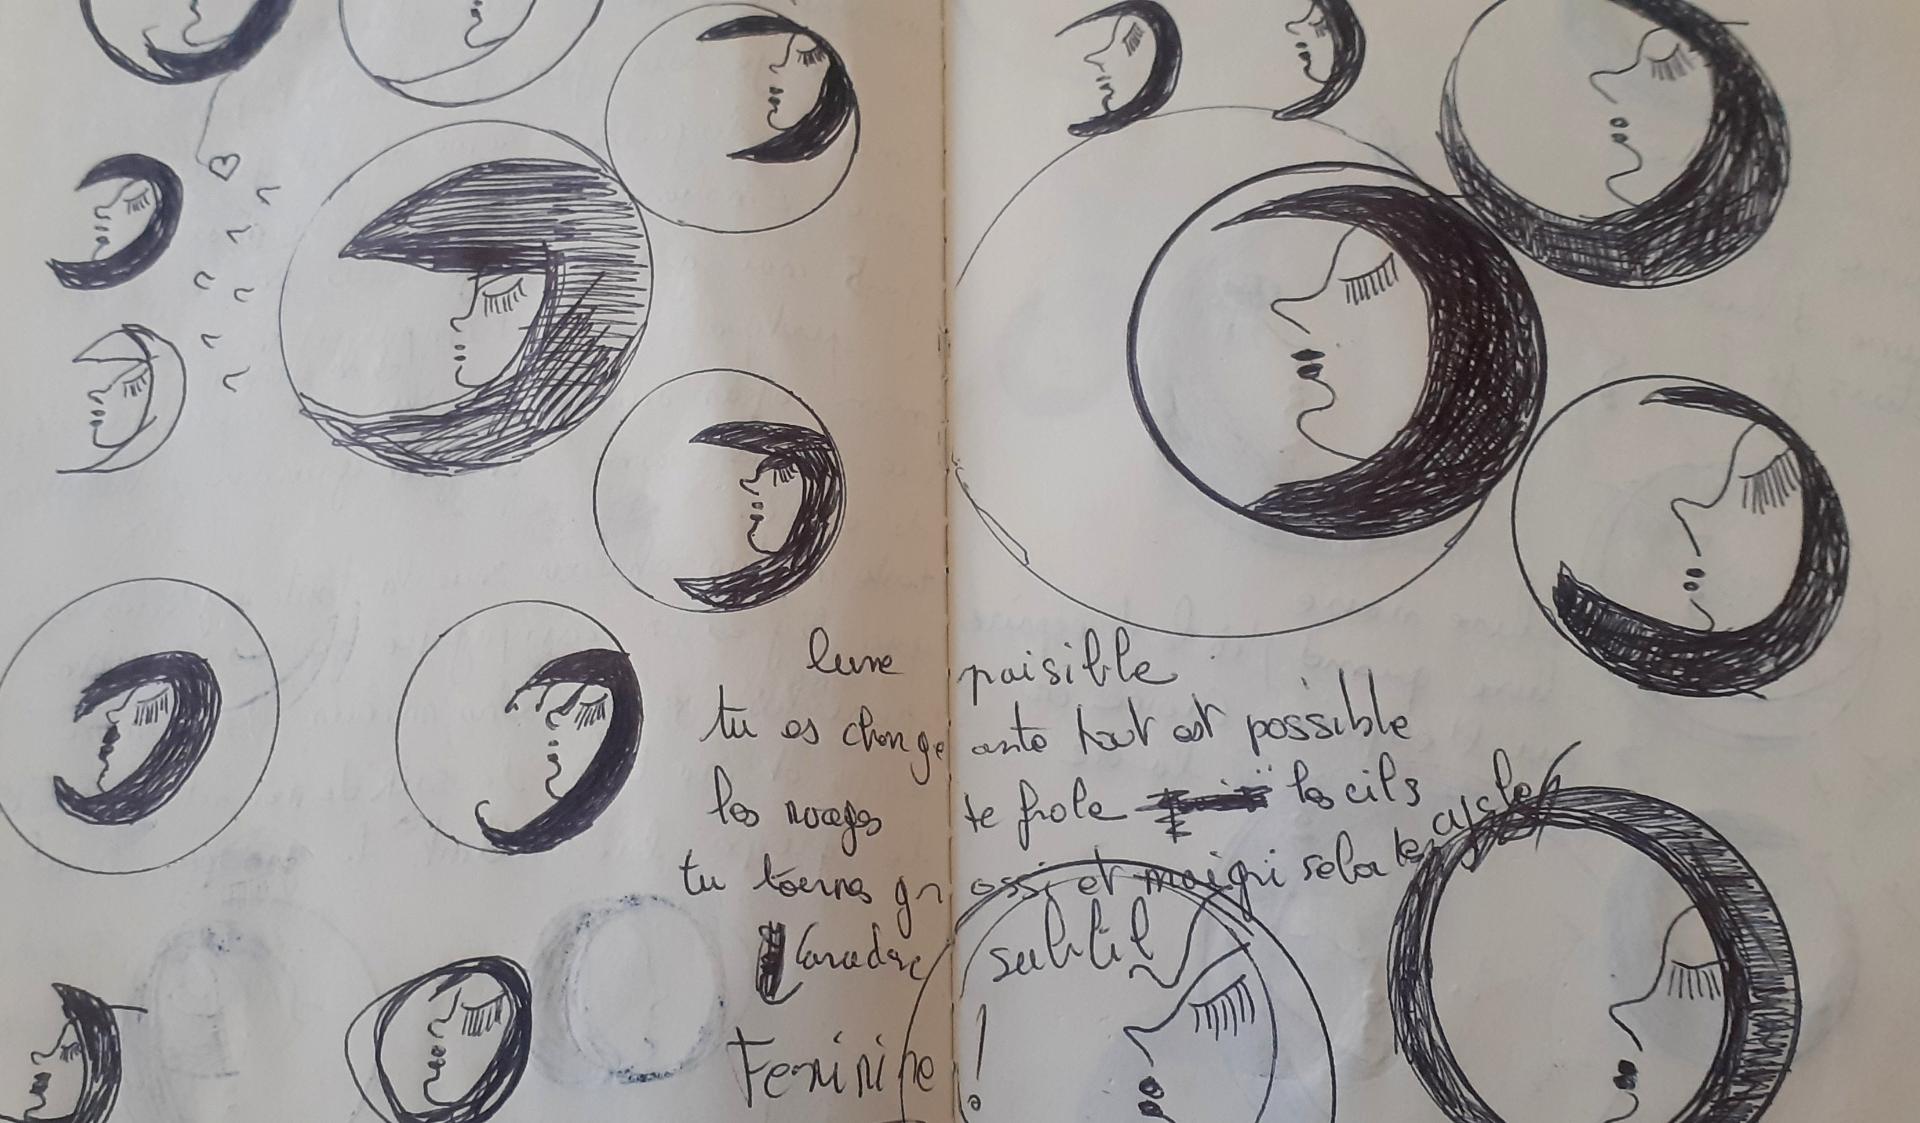 lune paisible
tu es changeante tout est possible
les nuages te frole les cils
tu tournes grossi et maigri selon les cycles
subtil
Feminine !